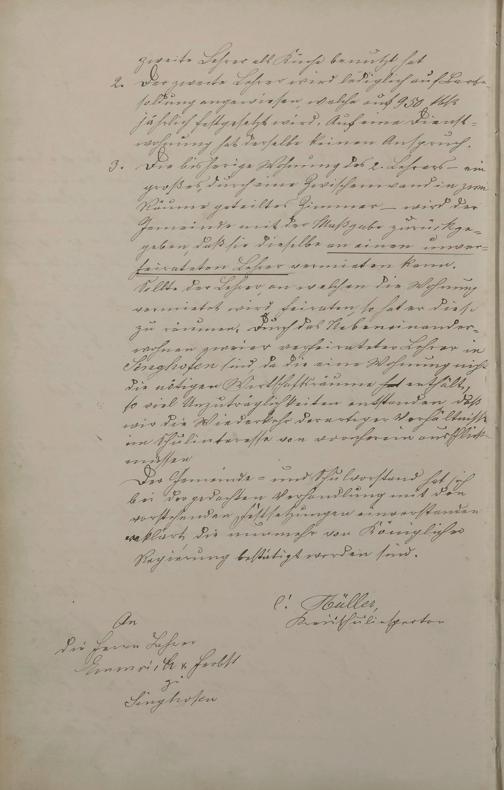 zweite Lehrer als Küche benutzt hat
2. Der zweite Lehrer wird lediglich auf Barbe-
soldung angewiesen, welche auf 950 Mk
jährlich festgesetzt wird. Auf eine Dienst-
wohnung hat derselbe keinen Anspruch.
3. Die bisherige Wohnung des 2. Lehrers – ein
großes, durch eine Zwischenwand in zwei
Räume geteiltes Zimmer – wird der
Gemeinde mit der Maßgabe zurückge-
geben, daß sie dieselbe an einen unver-
heirateten Lehrer vermieten kann.
Sollte der Lehrer, an welchen die Wohnung
vermietet wird, heiraten, so hat er diese
zu räumen. Durch das Nebeneinander-
wohnen zweier verheirateter Lehrer in
Singhofen sind, da die eine Wohnung nicht
die nötigen Wirtschaftsräume enthält,
so viel Unzuträglichkeiten entstanden, daß
wir die Wiederkehr derartiger Verhältnisse
im Schulinteresse von vornherein ausschließen
müssen
Der Gemeinde- und Schulvorstand hat sich
bei der gedachten Verhandlung mit den
vorstehenden Festsetzungen einverstanden
erklärt, die nunmehr von Königlicher
Regierung bestätigt worden sind.
Müller,
Kreisschulinspektor
An
die Herrn Lehrer
&
zu
Singhofen